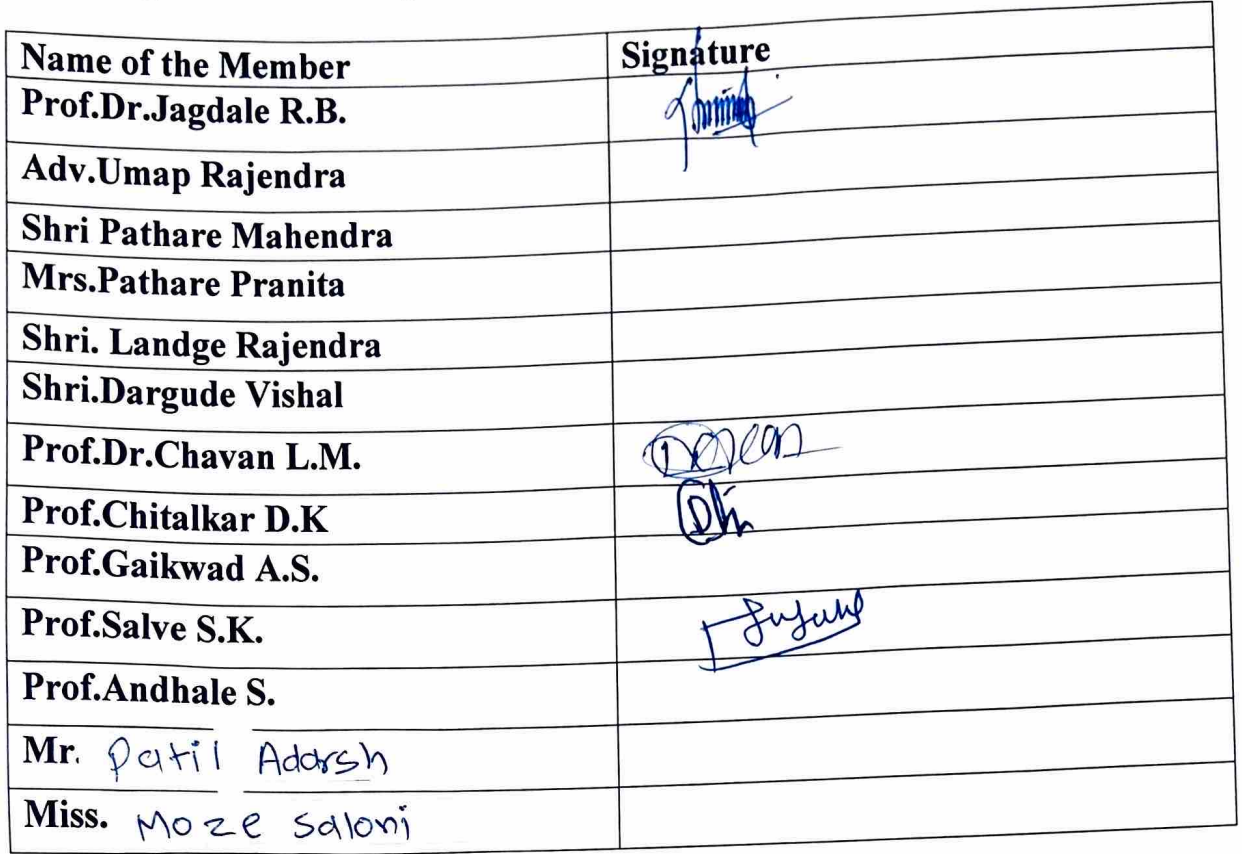 Name of the Member Signature
Prof.Dr.Jagdale R.B.
Adv.Umap Rajendra
Shri Pathare Mahendra
Mrs.Pathare Pranita
Shri. Landge Rajendra
Shri.Dargude Vishal
Prof.Dr.Chavan L.M.
Prof.Chitalkar D.K
Prof.Gaikwad A.S.
Prof.Salve S.K.
Prof.Andhale S.
Mr. Patil Adarsh
Miss. Moze Saloni